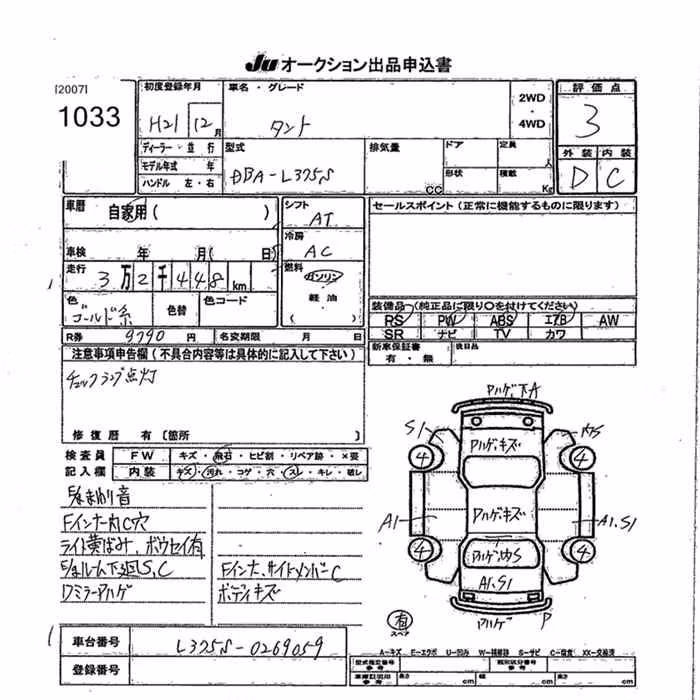 Ju オークション出品申込書
[2007]
1033
初度登録年月
H21 12月
車名・グレード
タント
2WD
・
4WD
評価点
3
外装 内装
D C
ディーラー・並行
モデル年式 年
ハンドル 左・右
型式
DBA-L375S
排気量
CC
ドア
形状
定員
人
積載
Kg
車歴 自家用( )
車検 年 月( 日)
走行 3万2千448km
色 ゴールド系
色替
色コード
シフト
AT
冷房
AC
燃料
ガソリン
・
軽油
( )
セールスポイント(正常に機能するものに限ります)
装備品(純正品に限り○を付けてください)
RS PW ABS エアB AW
SR ナビ TV カワ
R券 9790円 名変期限 月 日
新車保証書
有・無
注意事項申告欄(不具合内容等は具体的に記入して下さい)
チェックランプ点灯
修復歴 有[箇所
検査員
記入欄
FW キズ・飛石・ヒビ割・リペア跡・×要
内装 キズ・汚れ・コゲ・穴・スレ・キレ・破レ
Fインナー内C穴
ライト黄ばみ、ボウセイ有
Fインナー、サイドメンバーC
ボディキズ
アルゲ、下A
S1
アルゲ・キズ
4 4
A1 アルゲ・キズ A1.S1
4 4
A1.S1
アルゲ P
有
スペア
車台番号 L375S-0269059
登録番号
A-キズ E-エクボ U-凹み W-補修跡 S-サビ C-腐食 XX-交換済
型式指定番号
参考
類別区分番号
参考
車庫証明用
参考
長さ cm 幅 cm 高さ cm